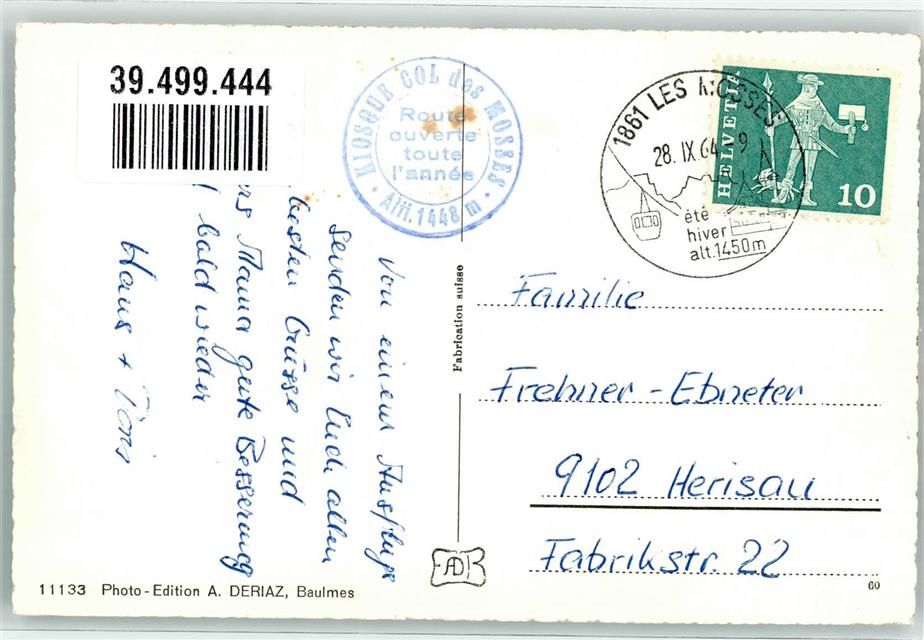 39.499.444
KIOSQUE COL des MOSSES
Route
ouverte
toute
l'année
Altt. 1448 m
1861 LES MOSSES
28. IX. 64 - 9
été
hiver
alt. 1450 m
HELVETIA
10
Von einem Ausflug
senden wir Euch allen
besten Grüsse und
ers Mama gute Besserung
bald wieder
Hans +
Fabrication suisse
Familie
Frehner - Ebneter
9102 Herisau
Fabrikstr. 22
AD
11133 Photo - Edition A. DERIAZ, Baulmes
60